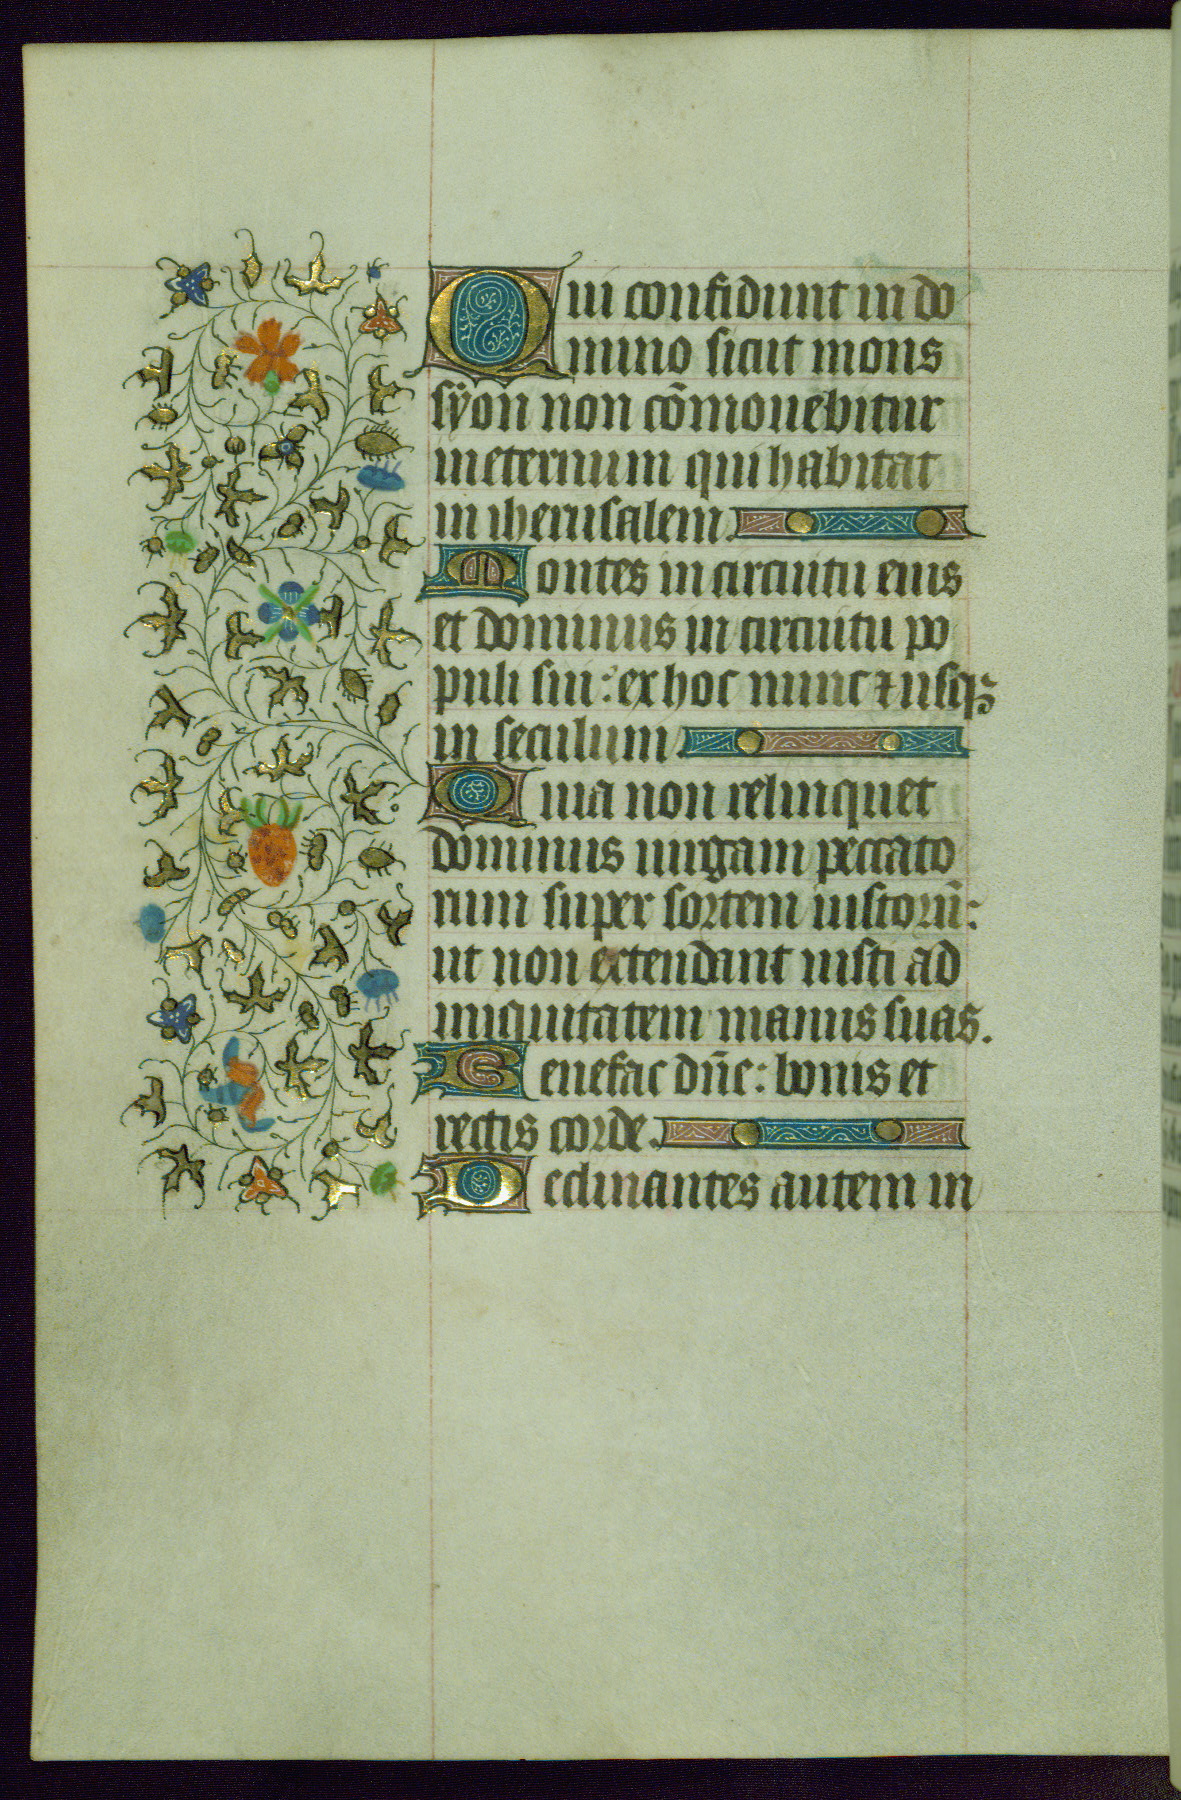 Qui confidunt in do
mino sicut mons
sÿon non cōmouebitur
in eternum qui habitat
in iherusalem.
Montes in circuitu eius
et dominus in circuitu po
puli sui: ex hoc nunc ⁊ usqꝫ
in seculum.
Quia non relinquet
dominus uirgam peccato
rum super sortem iustorū:
ut non extendant iusti ad
iniquitatem manus suas.
Benefac dn̄e: bonis et
rectis corde.
Declinantes autem in